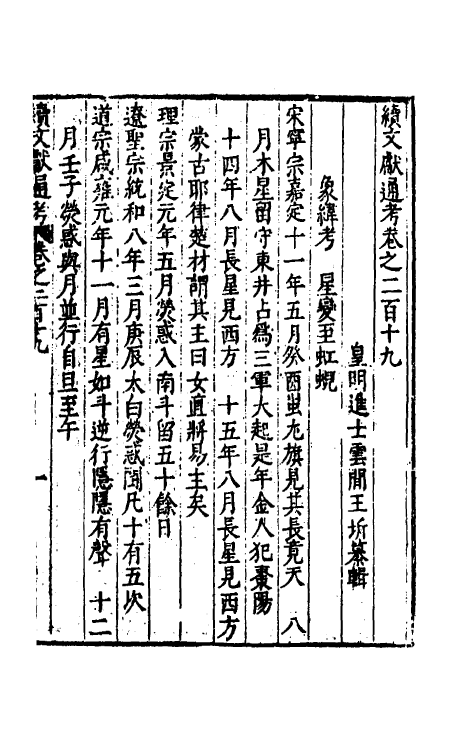 續文獻通考卷之二百十九
皇明進士雲間王圻纂輯
象緯考 星變至虹蜺
宋寧宗嘉定十一年五月癸酉蚩尤旗見其長竟天 八
月木星留守東井占爲三軍大起是年金人犯棗陽
十四年八月長星見西方 十五年八月長星見西方
蒙古耶律楚材謂其主曰女直將易主矣
理宗景定元年五月熒惑入南斗留五十餘日
遼聖宗統和八年三月庚辰太白熒惑鬥凡十有五次
道宗咸雍元年十一月有星如斗逆行隱隱有聲 十二
月壬子熒惑與月並行自旦至午
續文獻通考 卷之二百十九 一